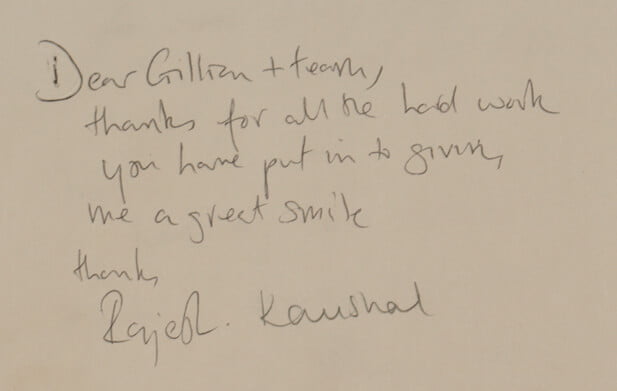 Dear Gillian + team,
thanks for all the hard work
you have put in to giving
me a great smile
thanks
Rajesh. Kaushal